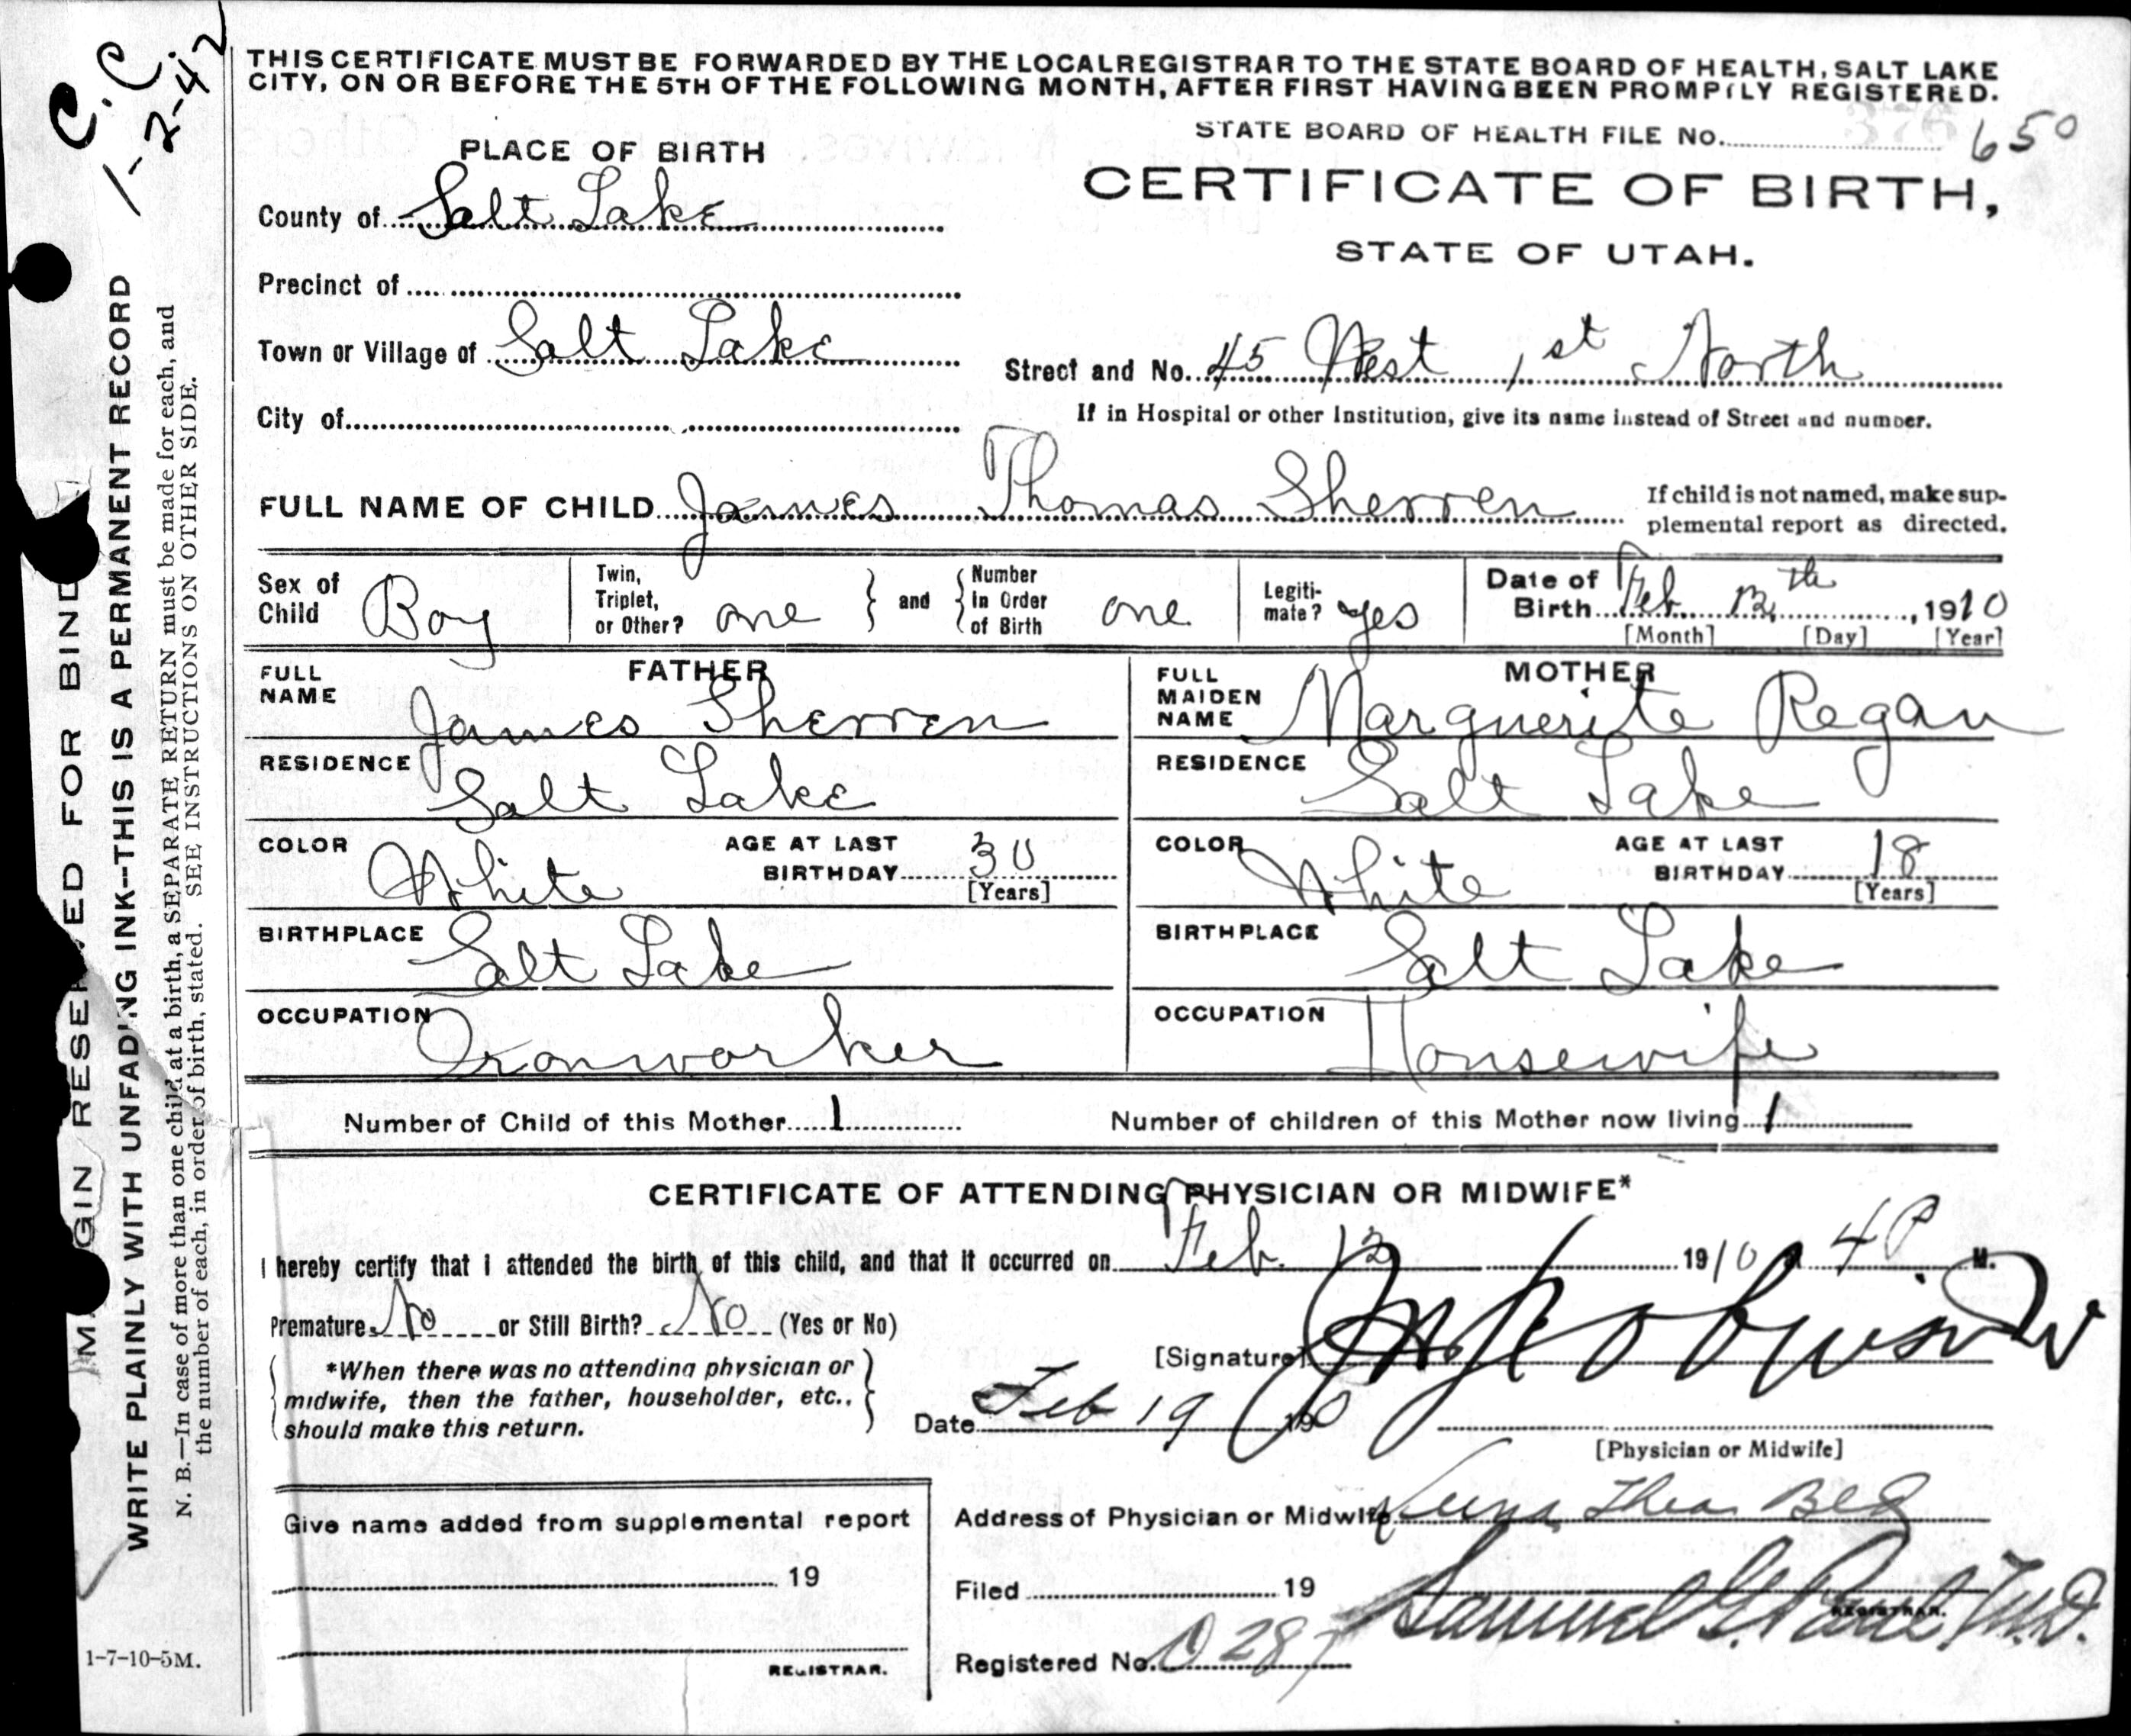 C.C.
1-2-42
THIS CERTIFICATE MUST BE FORWARDED BY THE LOCAL REGISTRAR TO THE STATE BOARD OF HEALTH, SALT LAKE
CITY, ON OR BEFORE THE 5TH OF THE FOLLOWING MONTH, AFTER FIRST HAVING BEEN PROMPTLY REGISTERED.
STATE BOARD OF HEALTH FILE No. 650
PLACE OF BIRTH
CERTIFICATE OF BIRTH,
STATE OF UTAH.
County of Salt Lake
Precinct of
Town or Village of Salt Lake
Street and No. 45 West 1st North
City of
If in Hospital or other Institution, give its name instead of Street and number.
FULL NAME OF CHILD James Thomas Sherren
If child is not named, make sup-
plemental report as directed.
Sex of Child Boy
Twin, Triplet, or Other? one } and { Number In Order of Birth one
Legiti-mate? yes
Date of Birth Feb. 12th, 1910
[Month] [Day] [Year]
FATHER
FULL NAME James Sherren
RESIDENCE Salt Lake
COLOR White AGE AT LAST BIRTHDAY 30
[Years]
BIRTHPLACE Salt Lake
OCCUPATION Ironworker
MOTHER
FULL MAIDEN NAME Marguerite Regan
RESIDENCE Salt Lake
COLOR White AGE AT LAST BIRTHDAY 18
[Years]
BIRTHPLACE Salt Lake
OCCUPATION Housewife
Number of Child of this Mother 1
Number of children of this Mother now living 1
CERTIFICATE OF ATTENDING PHYSICIAN OR MIDWIFE*
I hereby certify that I attended the birth of this child, and that it occurred on Feb. 12 1910 4 P M.
Premature No or Still Birth? No (Yes or No)
[Signature]
*When there was no attending physician or
midwife, then the father, householder, etc.,
should make this return.
Date Feb 19 190
[Physician or Midwife]
Address of Physician or Midwife
Give name added from supplemental report
19
REGISTRAR.
Filed 19
Samuel G. Paul M.D.
REGISTRAR.
Registered No. 0287
MARGIN RESERVED FOR BIND
WRITE PLAINLY WITH UNFADING INK--THIS IS A PERMANENT RECORD
N. B.—In case of more than one child at a birth, a SEPARATE RETURN must be made for each, and
the number of each, in order of birth, stated. SEE INSTRUCTIONS ON OTHER SIDE.
1-7-10-5M.